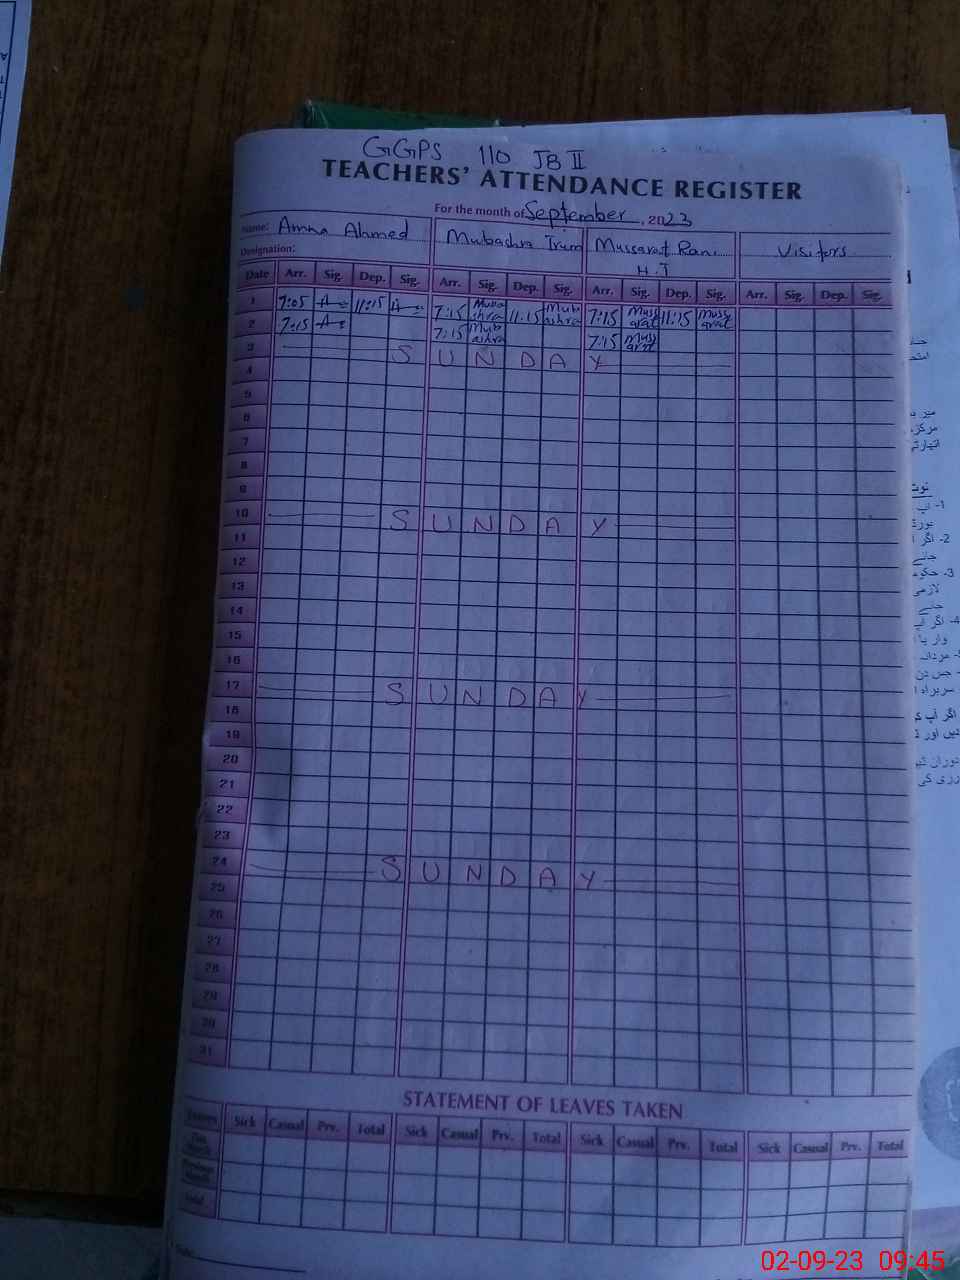 GGPS 110 JB II
TEACHERS' ATTENDANCE REGISTER
For the month of September, 2023
Name: Amna Ahmed Mubashra Irum Mussarat Rani Visitors
Designation: H.T
Date Arr. Sig. Dep. Sig. Arr. Sig. Dep. Sig. Arr. Sig. Dep. Sig. Arr. Sig. Dep. Sig.
1 7:05 A 11:15 A 7:15 Muba shra 11:15 Mub ashra 7:15 Muss arat 11:15 Muss arat
2 7:15 A 7:15 Mub ashra 7:15 Muss arat
3 SUNDAY
4
5
6
7
8
9
10 SUNDAY
11
12
13
14
15
16
17 SUNDAY
18
19
20
21
22
23
24 SUNDAY
25
26
27
28
29
30
31
STATEMENT OF LEAVES TAKEN
Sick Casual Prv. Total Sick Casual Prv. Total Sick Casual Prv. Total Sick Casual Prv. Total
This Month
Previous Month
Total
مرکز
نوٹ
1- اپ
بورڈ
2- اگر
جائے
3- حکومت
لازمی
جائے
4- اگر اپ
جس دن
سربراہ
اگر آپ کو
دیں اور
دوران
02-09-23 09:45